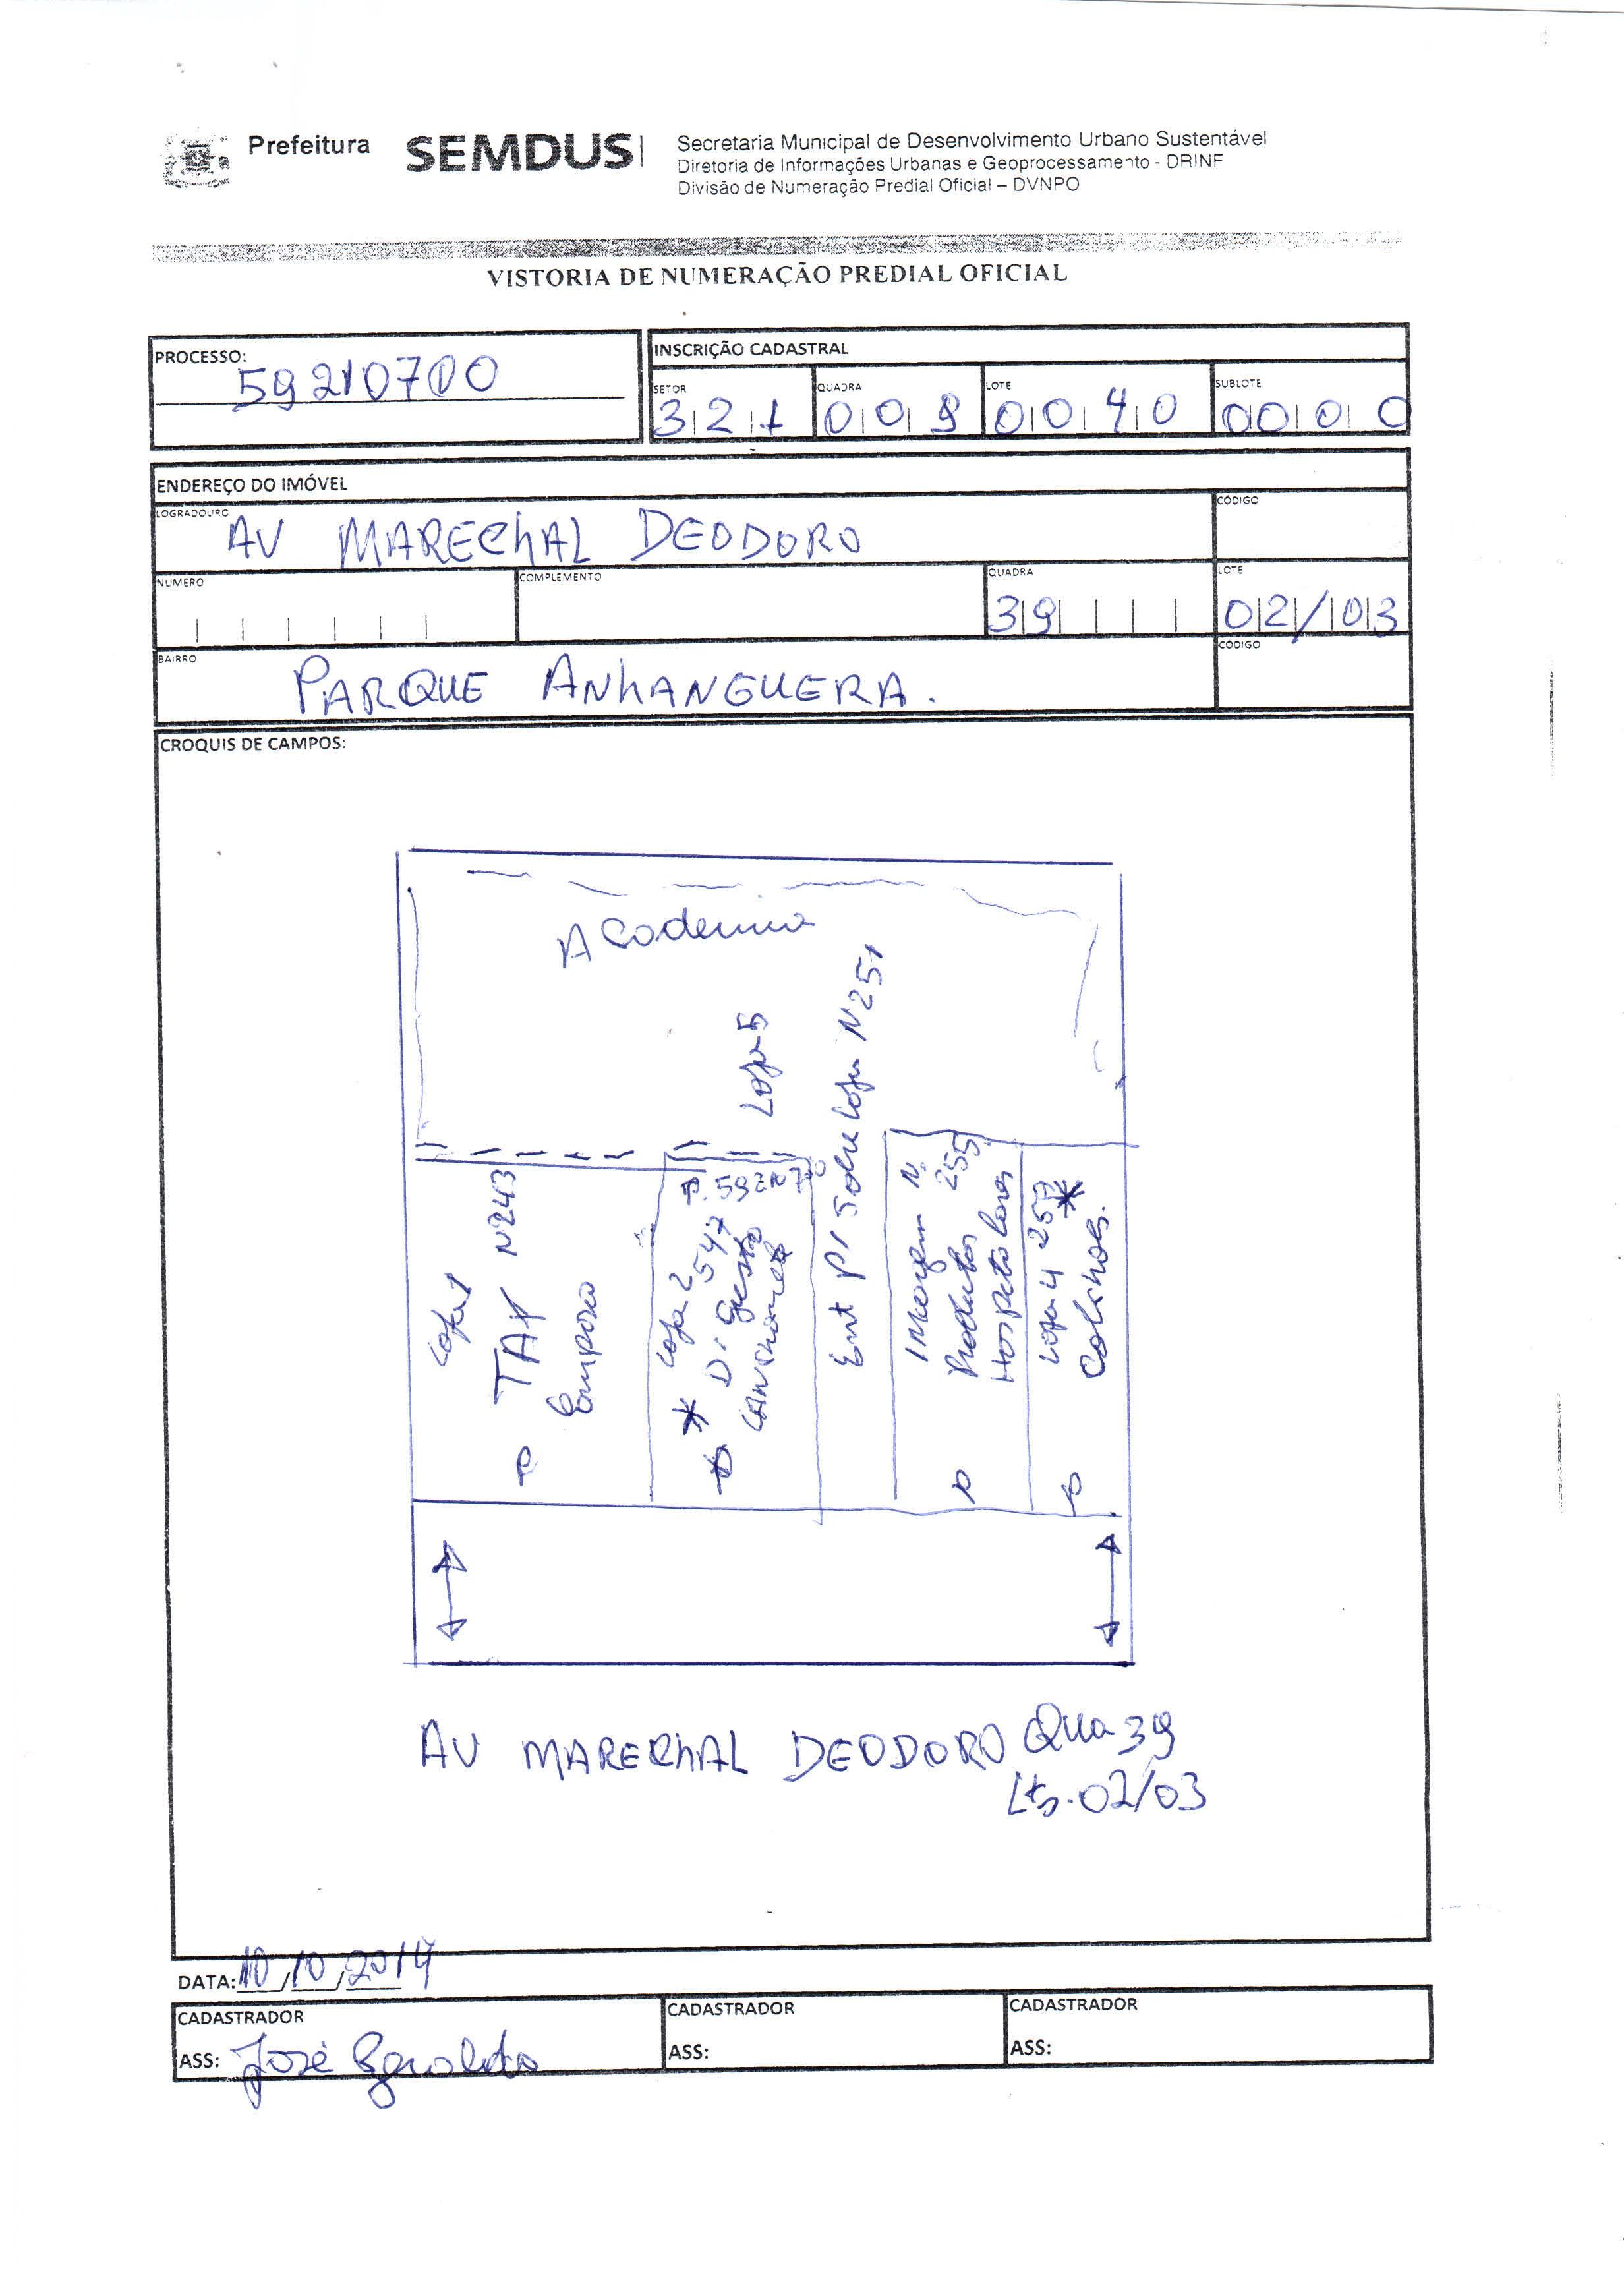 Prefeitura SEMDUS
Secretaria Municipal de Desenvolvimento Urbano Sustentável
Diretoria de Informações Urbanas e Geoprocessamento - DRINF
Divisão de Numeração Predial Oficial – DVNPO
VISTORIA DE NUMERAÇÃO PREDIAL OFICIAL
PROCESSO:
59210700
INSCRIÇÃO CADASTRAL
SETOR QUADRA LOTE SUBLOTE
321 009 0040 0000
ENDEREÇO DO IMÓVEL
LOGRADOURO CÓDIGO
AV MARECHAL DEODORO
NUMERO COMPLEMENTO QUADRA LOTE
39 02/03
BAIRRO CÓDIGO
PARQUE ANHANGUERA.
CROQUIS DE CAMPOS:
Academia
Loja 5
Loja 1
TAY N243
Loja 2
P. 59210700
Ent P/ Sobre Loja N251
Imagem N.
Produtos 255
Hospitalares
Loja 4 257
Colchoes.
AV MARECHAL DEODORO Qua 39
Lts. 02/03
DATA: 10/10/2014
CADASTRADOR CADASTRADOR CADASTRADOR
ASS: José ASS: ASS: